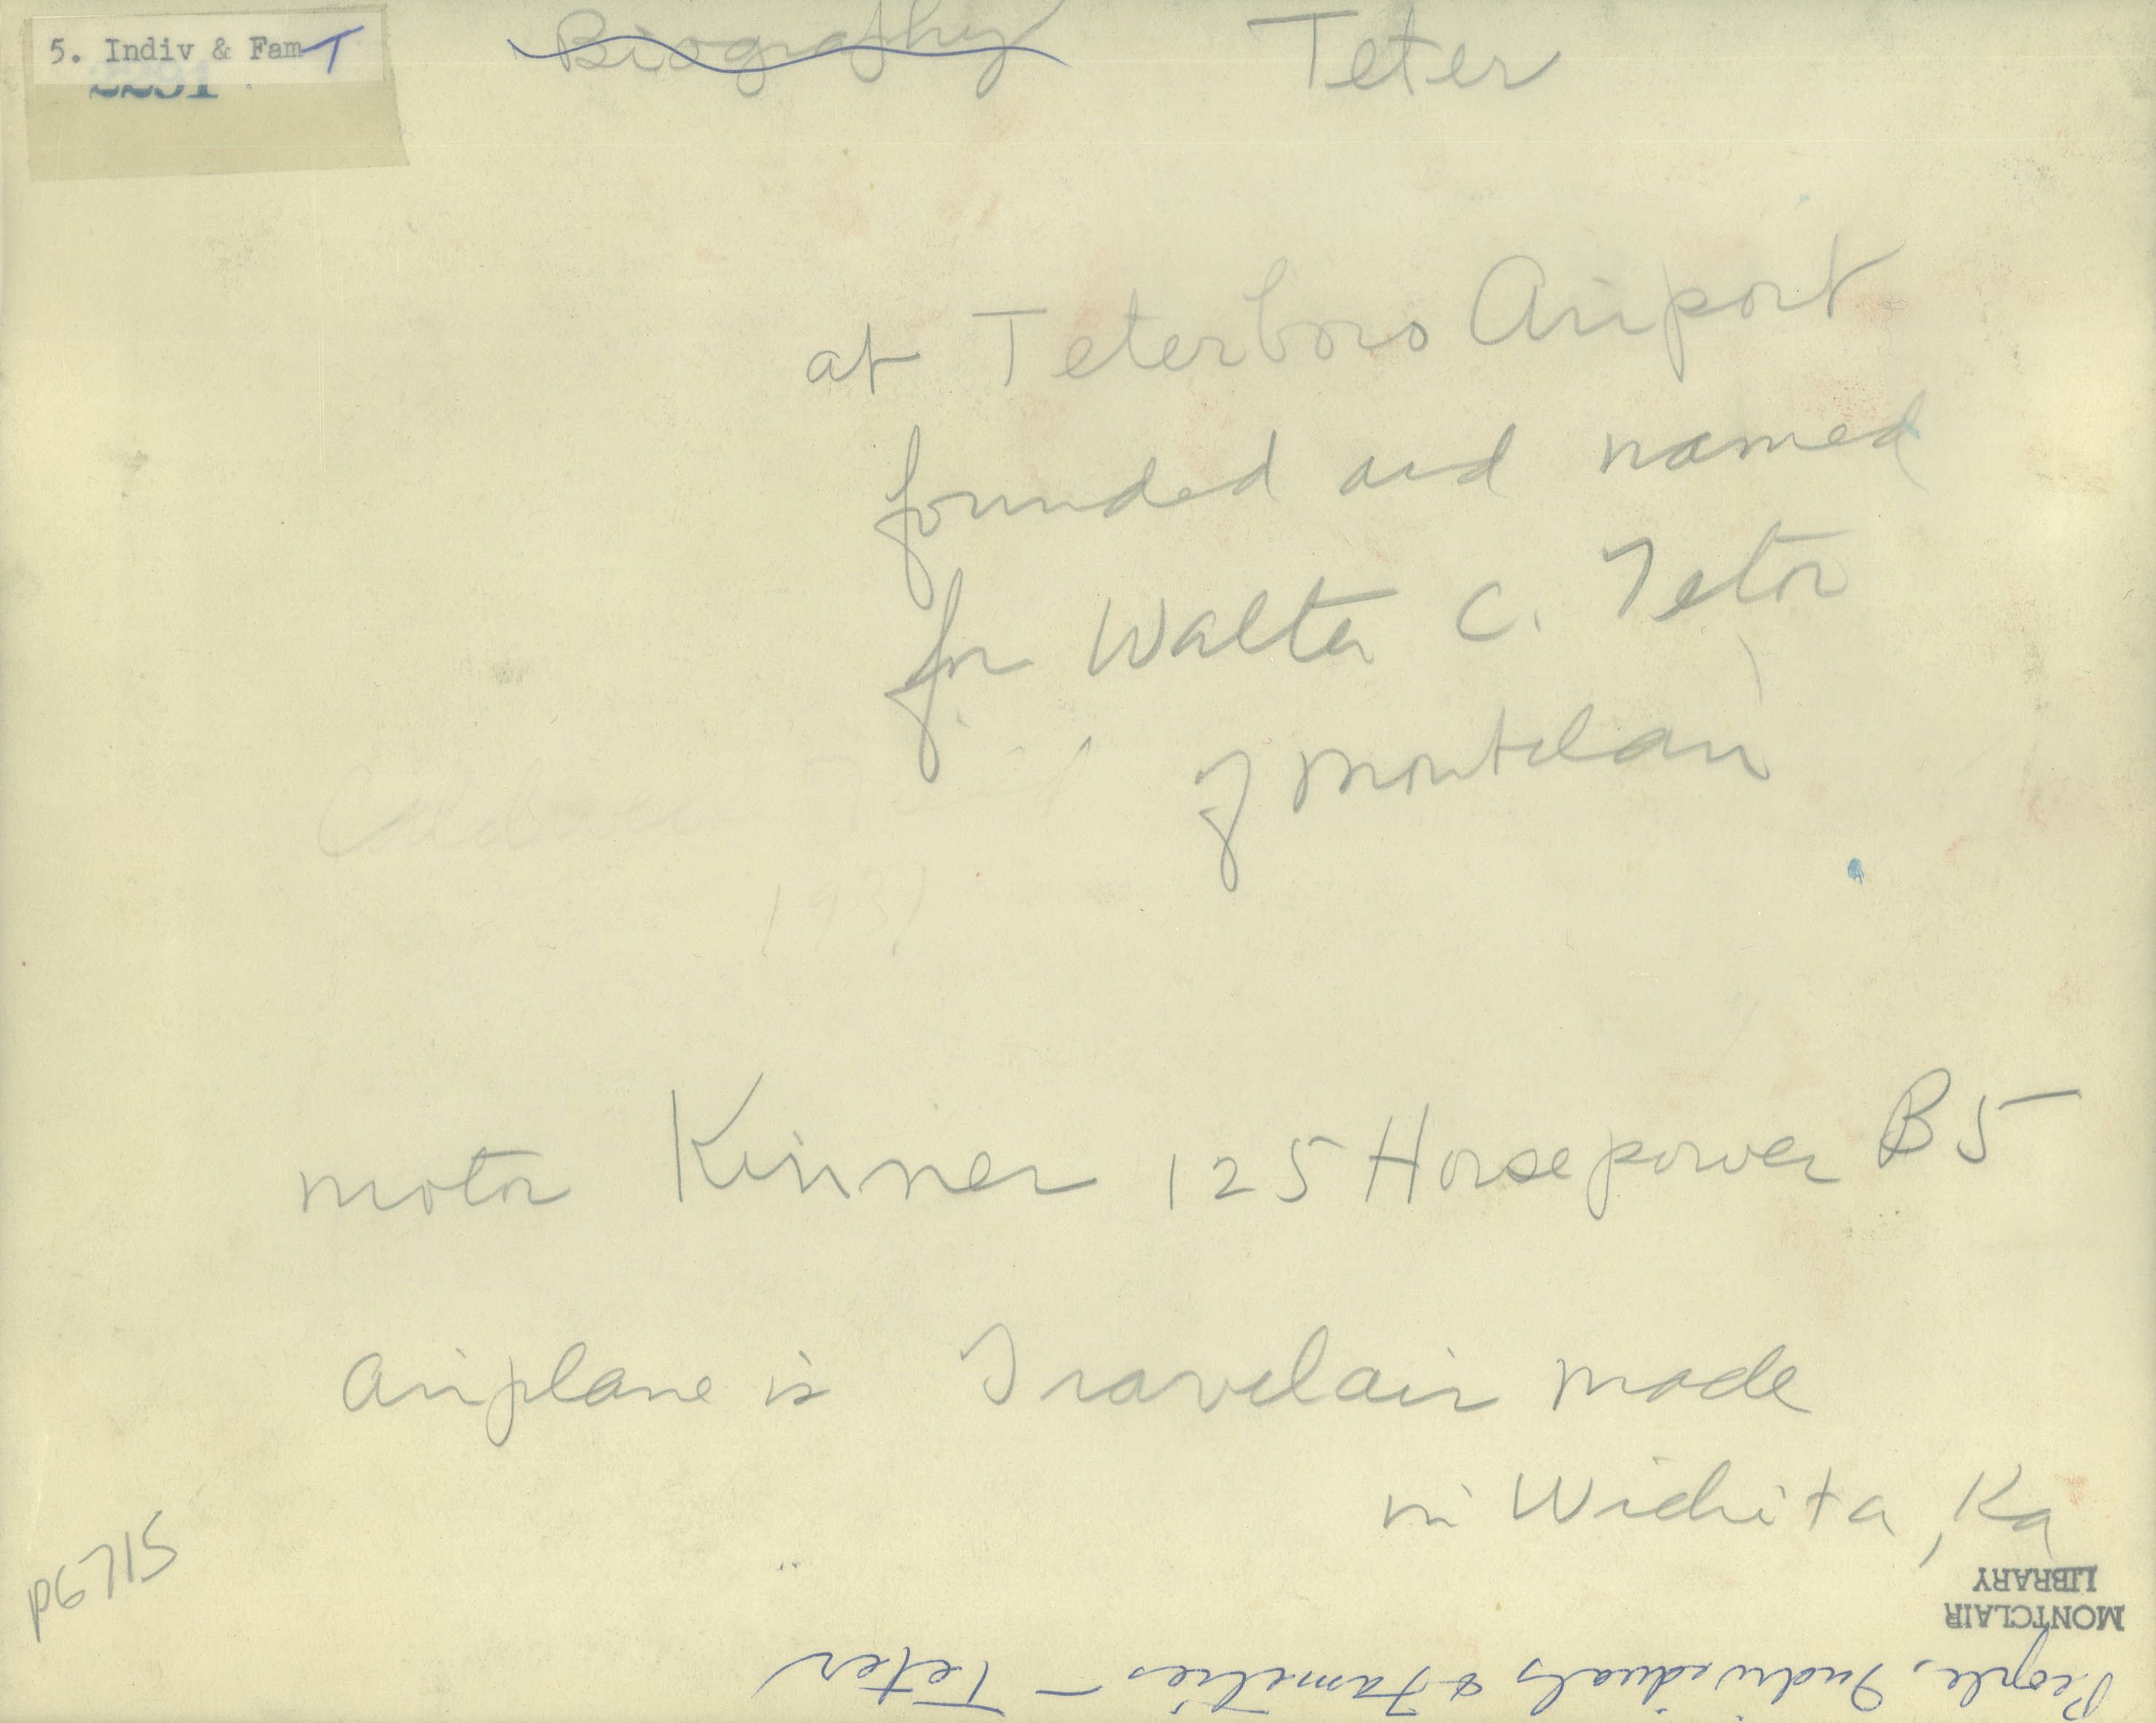 5. Indiv & Fam T
2291
Biography Teter
at Teterboro Airport
founded and named
for Walter C. Teter
of Montclair
1931
motor Kinner 125 Horsepower B5
Airplane is Travelair made
in Wichita, Ka
p6715
MONTCLAIR
LIBRARY
People, Individuals & Families - Teter